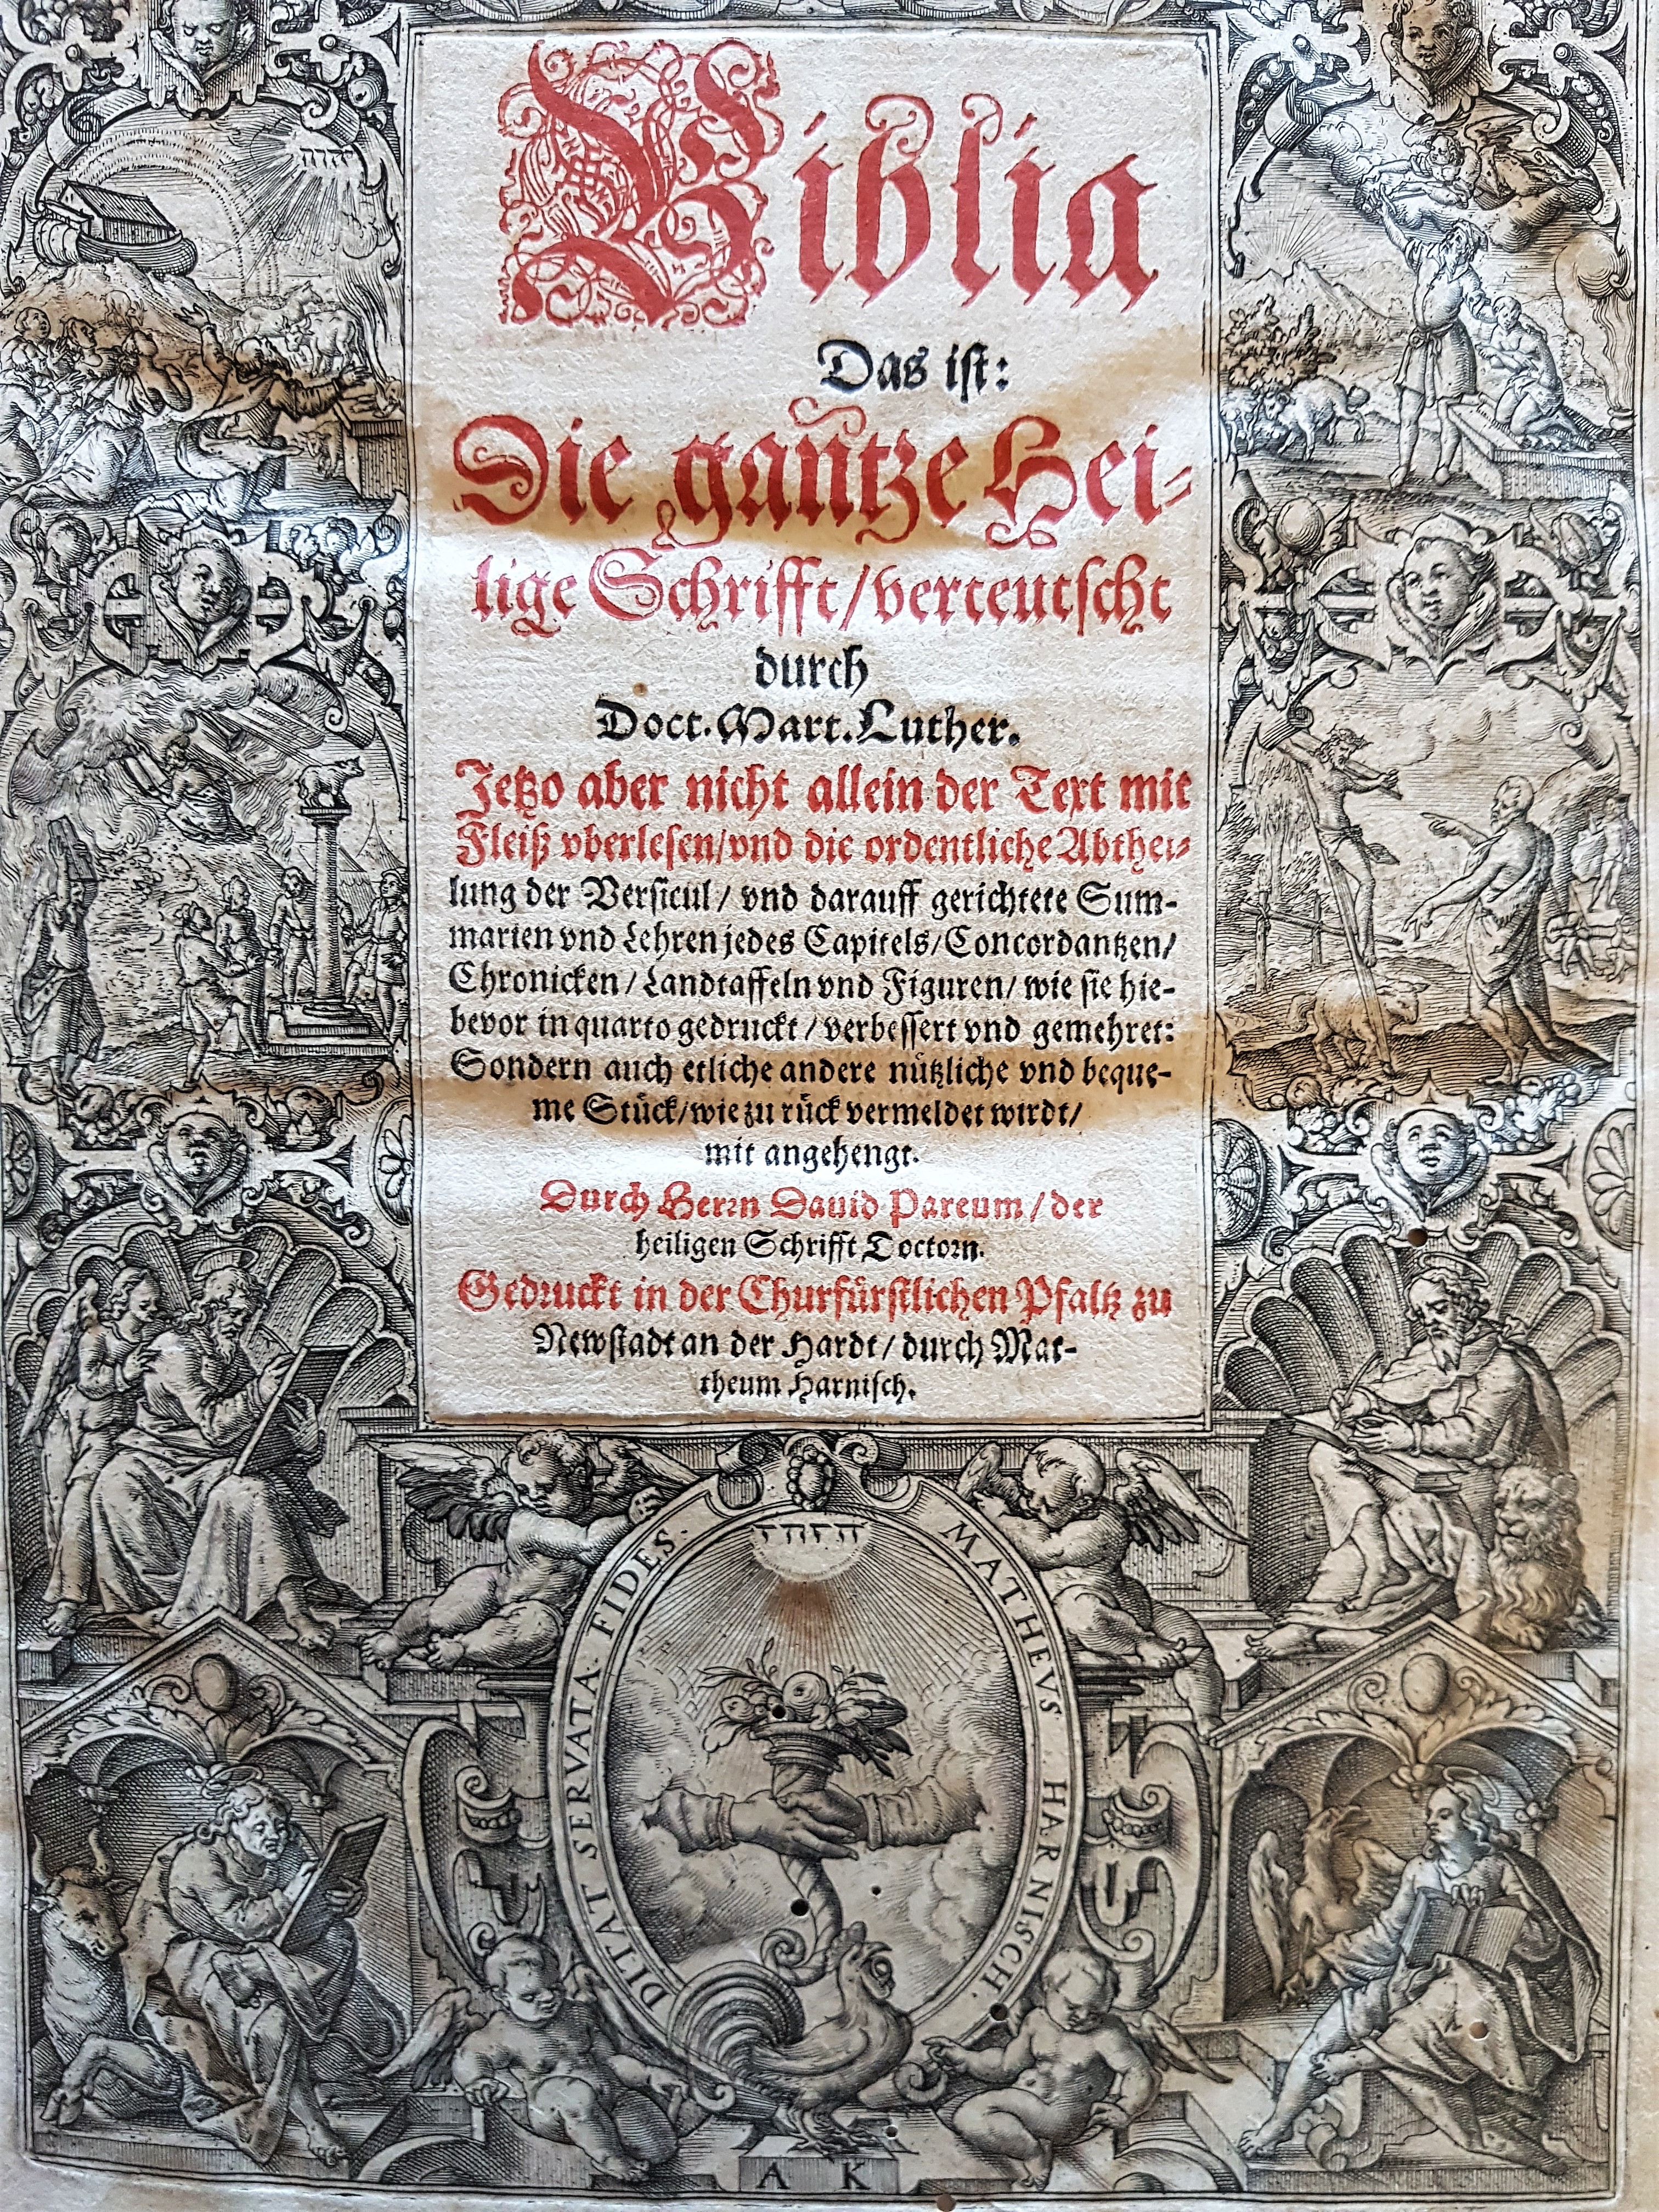 Biblia
Das ist:
Die gantze Hei-
lige Schrifft/verteutscht
durch
Doct. Mart. Luther.
Jetzo aber nicht allein der Text mit
Fleiß vberlesen/vnd die ordentliche Abthei-
lung der Versicul/ vnd darauff gerichtete Sum-
marien vnd Lehren jedes Capitels/Concordantzen/
Chronicken/Landtaffeln vnd Figuren/ wie sie hie-
bevor in quarto gedruckt/verbessert vnd gemehret:
Sondern auch etliche andere nützliche vnd beque-
me Stück/wie zu rück vermeldet wirdt/
mit angehengt.
Durch Herrn Dauid Pareum/der
heiligen Schrifft Doctorn.
Gedruckt in der Churfürstlichen Pfaltz zu
Newstadt an der Hardt/durch Mat-
theum Harnisch.
יהוה
DITAT SERVATA FIDES. MATHEVS HARNISCH.
A K